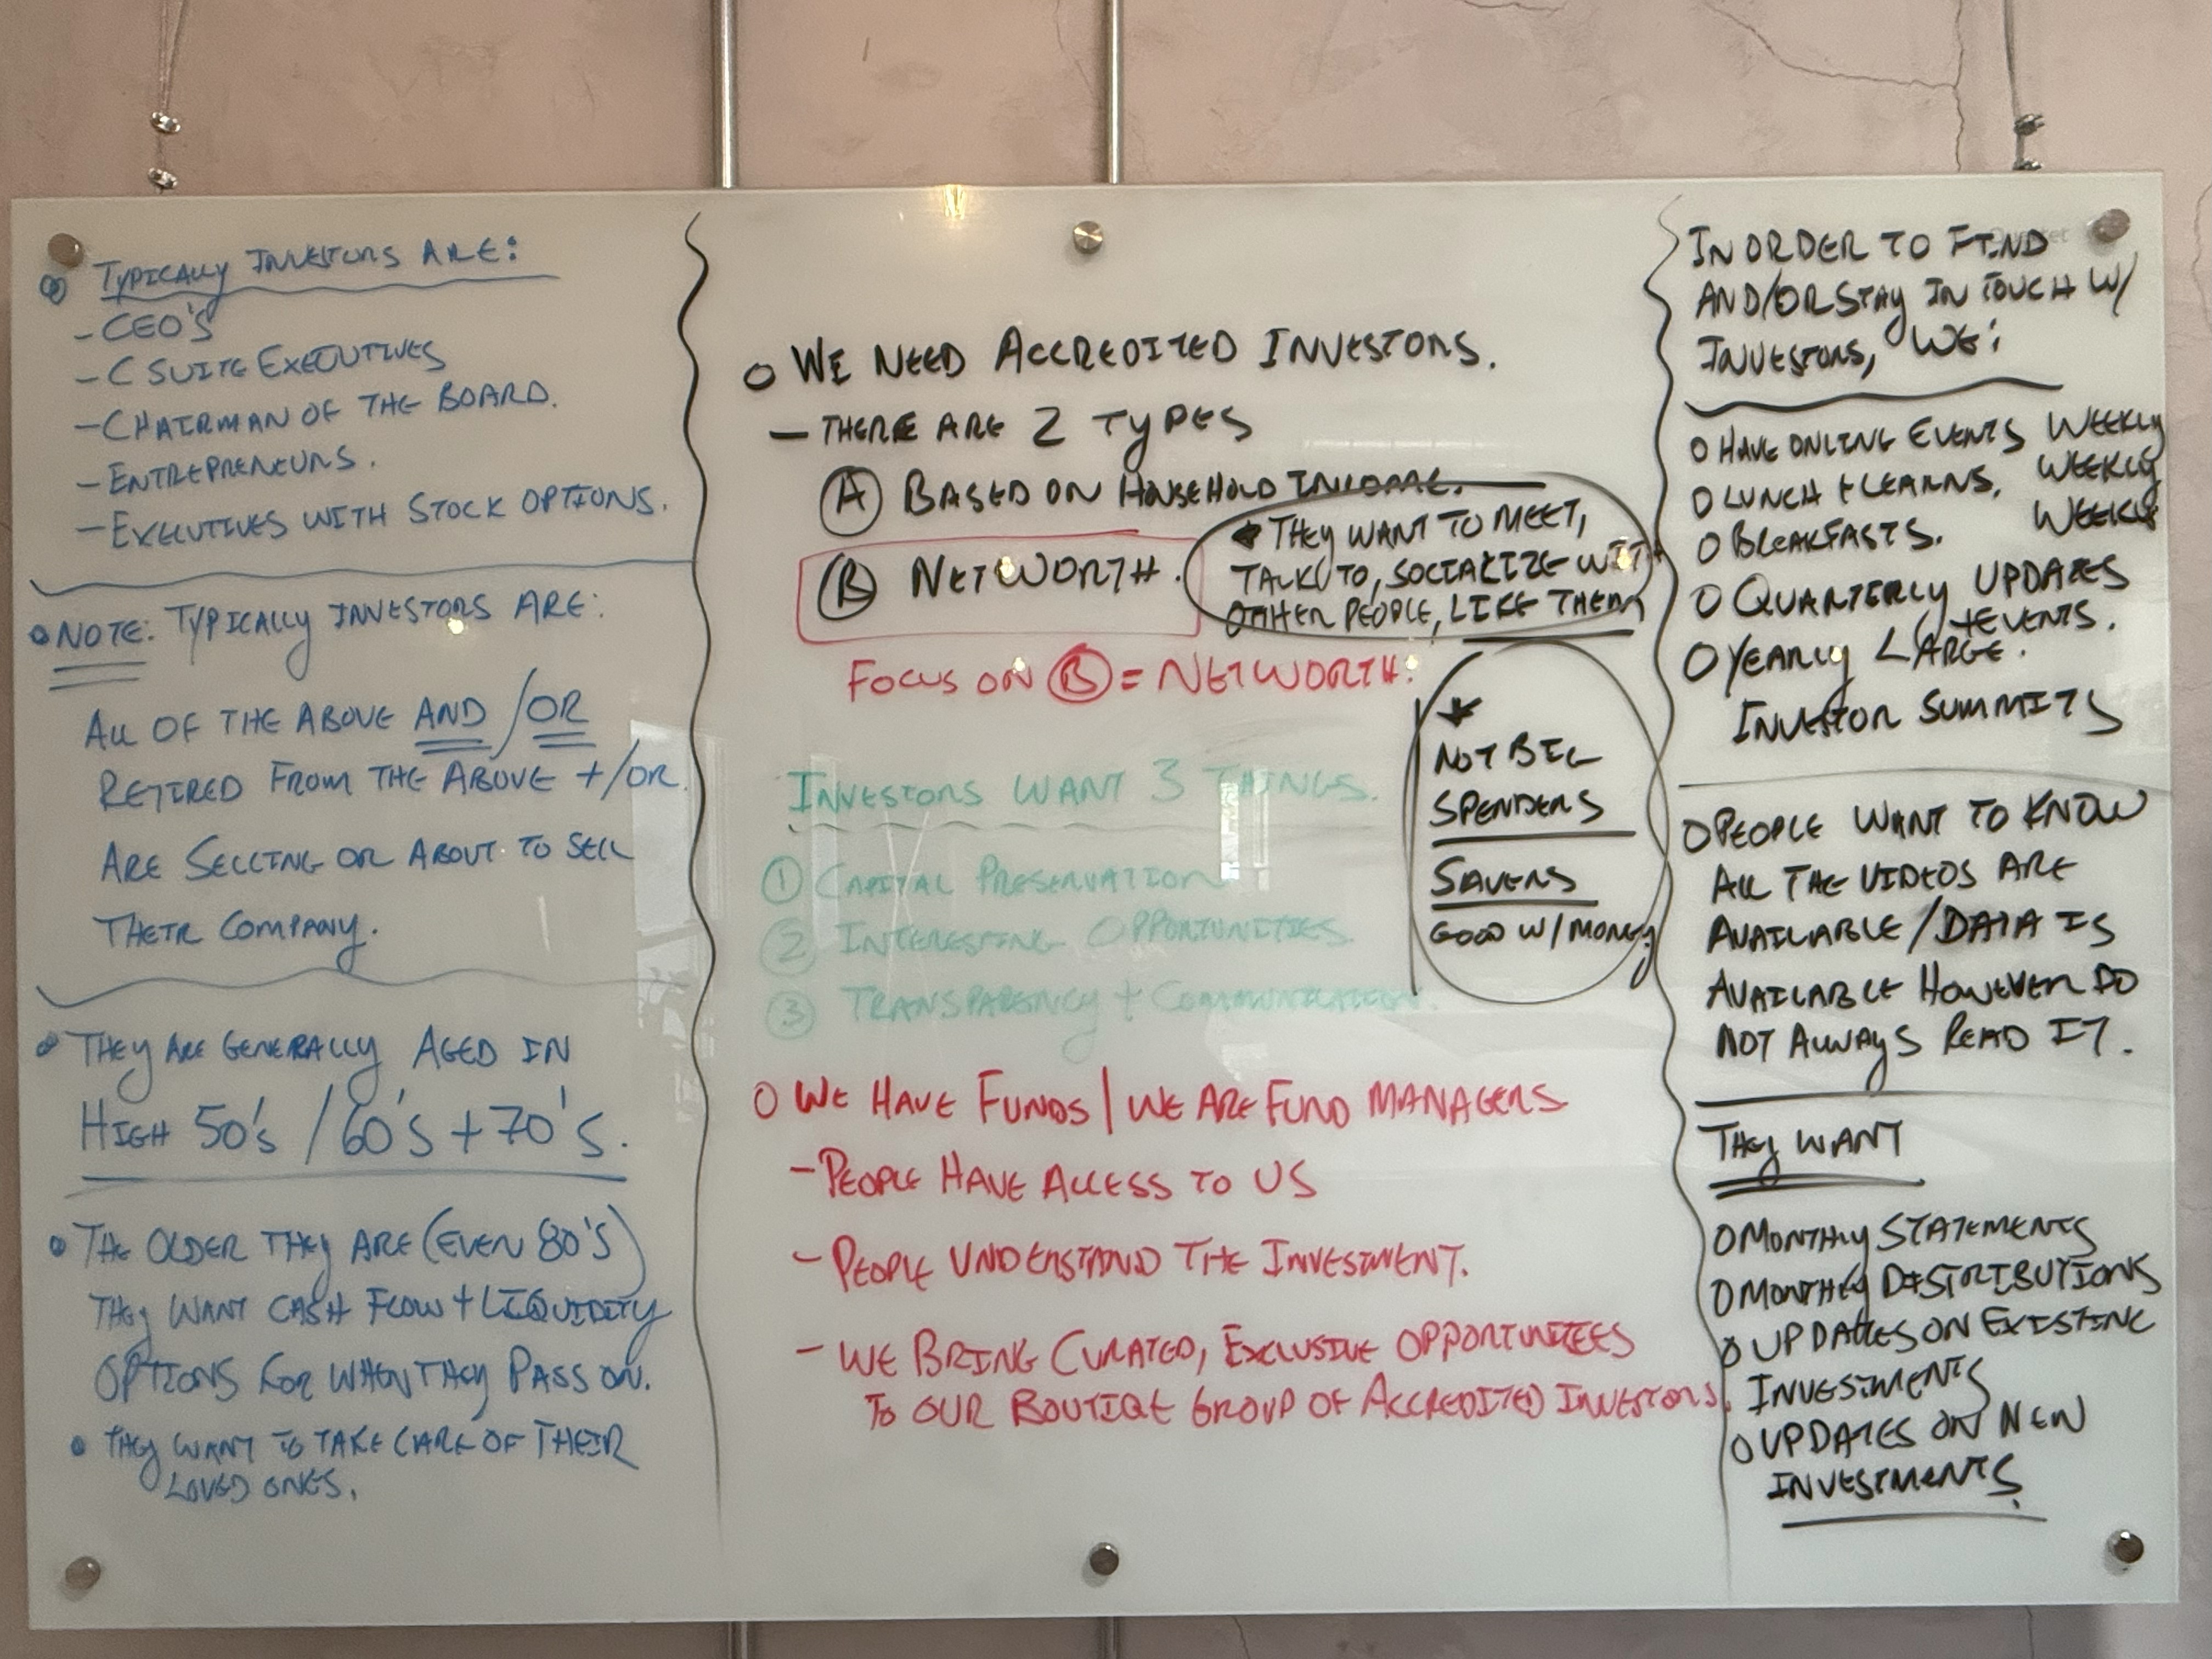 TYPICALLY INVESTORS ARE:
- CEO'S
- C SUITE EXECUTIVES
- CHAIRMAN OF THE BOARD.
- ENTREPRENEURS.
- EXECUTIVES WITH STOCK OPTIONS.
NOTE: TYPICALLY INVESTORS ARE:
ALL OF THE ABOVE AND/OR
RETIRED FROM THE ABOVE +/OR
ARE SELLING OR ABOUT TO SELL
THEIR COMPANY.
THEY ARE GENERALLY AGED IN
HIGH 50's /60's + 70's.
THE OLDER THEY ARE (EVEN 80's)
THEY WANT CASH FLOW + LIQUIDITY
OPTIONS FOR WHEN THEY PASS ON.
THEY WANT TO TAKE CARE OF THEIR
LOVED ONES.
WE NEED ACCREDITED INVESTORS.
- THERE ARE 2 TYPES
A BASED ON HOUSEHOLD INCOME.
B NETWORTH.
THEY WANT TO MEET,
TALK TO, SOCIALIZE WITH
OTHER PEOPLE, LIKE THEM
FOCUS ON B = NETWORTH.
NOT BIG
SPENDERS
SAVERS
GOOD W/ MONEY
INVESTORS WANT 3 THINGS.
1 CAPITAL PRESERVATION
2 INTERESTING OPPORTUNITIES.
3 TRANSPARENCY + COMMUNICATION.
WE HAVE FUNDS | WE ARE FUND MANAGERS
- PEOPLE HAVE ACCESS TO US
- PEOPLE UNDERSTAND THE INVESTMENT.
- WE BRING CURATED, EXCLUSIVE OPPORTUNITEES
TO OUR BOUTIQE GROUP OF ACCREDITED INVESTORS.
IN ORDER TO FIND
AND/OR STAY IN TOUCH W/
INVESTORS, WE:
O HAVE ONLINE EVENTS WEEKLY
O LUNCH + LEARNS. WEEKLY
O BREAKFASTS. WEEKLY
O QUARTERLY UPDATES
+ EVENTS.
O YEARLY LARGE.
INVESTOR SUMMITS
O PEOPLE WANT TO KNOW
ALL THE VIDEOS ARE
AVAILABLE/DATA IS
AVAILABLE HOWEVER DO
NOT ALWAYS READ IT.
THEY WANT
O MONTHLY STATEMENTS
O MONTHLY DISTRIBUTIONS
O UPDATES ON EXISTING
INVESTMENTS
O UPDATES ON NEW
INVESTMENTS.